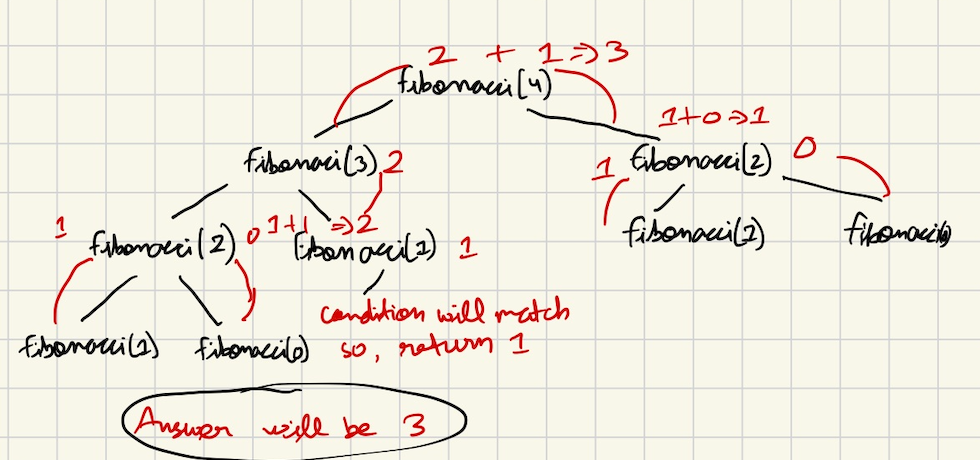 2 + 1 => 3
fibonacci(4)
1+0 => 1
fibonaci(3) 2
1 fibonacci(2) 0
1 fibonacci(2) 0
1+1 => 2
fibonacci(1) 1
fibonacci(1)
fibonacci(0)
condition will match
so, return 1
fibonacci(1)
fibonacci(0)
Answer will be 3